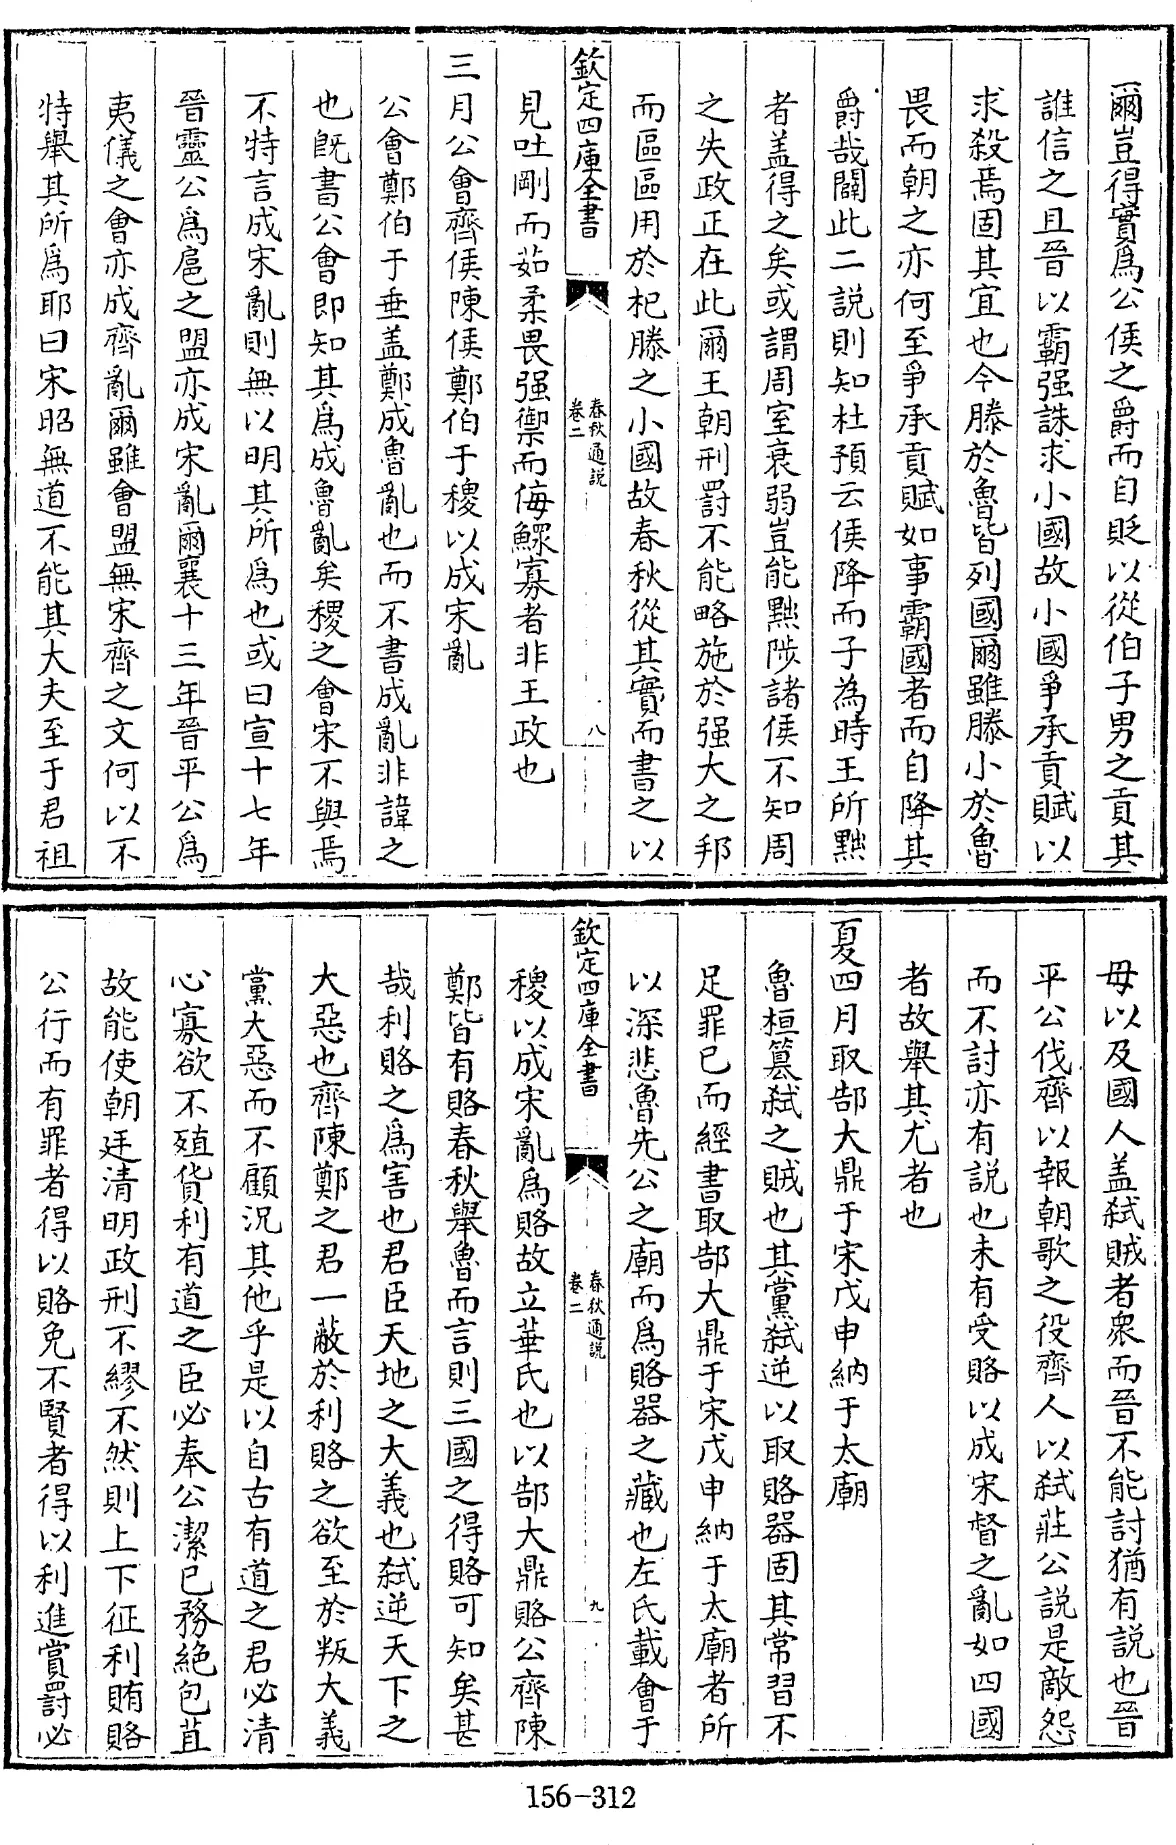 爾豈得實為公侯之爵而自貶以從伯子男之貢其
誰信之且晉以霸强誅求小國故小國爭承貢賦以
求殺焉固其宜也今滕於魯皆列國爾雖滕小於魯
畏而朝之亦何至爭承貢賦如事霸國者而自降其
爵哉闢此二説則知杜預云侯降而子為時王所黜
者盖得之矣或謂周室衰弱豈能黜陟諸侯不知周
之失政正在此爾王朝刑罰不能略施於强大之邦
而區區用於杞滕之小國故春秋從其實而書之以
欽定四庫全書
春秋通説
卷二
八
見吐剛而茹柔畏强禦而侮鰥寡者非王政也
三月公會齊侯陳侯鄭伯于稷以成宋亂
公會鄭伯于垂盖鄭成魯亂也而不書成亂非諱之
也既書公會即知其爲成魯亂矣稷之會宋不與焉
不特言成宋亂則無以明其所爲也或曰宣十七年
晉靈公爲扈之盟亦成宋亂爾襄十三年晉平公爲
夷儀之會亦成齊亂爾雖會盟無宋齊之文何以不
特舉其所爲耶曰宋昭無道不能其大夫至于君祖
母以及國人盖弑賊者衆而晉不能討猶有説也晉
平公伐齊以報朝歌之役齊人以弑莊公説是敵怨
而不討亦有説也未有受賂以成宋督之亂如四國
者故舉其尤者也
夏四月取郜大鼎于宋戊申納于太廟
魯桓簒弑之賊也其黨弑逆以取賂器固其常習不
足罪已而經書取郜大鼎于宋戊申納于太廟者所
以深悲魯先公之廟而爲賂器之藏也左氏載會于
欽定四庫全書
春秋通説
卷二
九
稷以成宋亂爲賂故立華氏也以郜大鼎賂公齊陳
鄭皆有賂春秋舉魯而言則三國之得賂可知矣甚
哉利賂之爲害也君臣天地之大義也弑逆天下之
大惡也齊陳鄭之君一蔽於利賂之欲至於叛大義
黨大惡而不顧況其他乎是以自古有道之君必清
心寡欲不殖貨利有道之臣必奉公潔已務絶包苴
故能使朝廷清明政刑不繆不然則上下征利賄賂
公行而有罪者得以賂免不賢者得以利進賞罰必
156-312